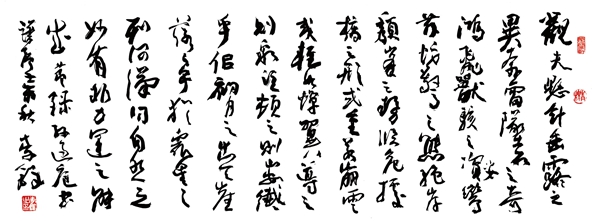 觀夫懸針垂露之
異奔雷墜石之奇
鴻飛獸駭之資鸞
舞蛇驚之態絕岸
頹峰之勢臨危據
槁之形或重若崩雲
或輕如蟬翼導之
則泉注頓之則山安纖
乎似初月之出天崖
落落乎猶衆星之
列河漢同自然之
妙有非力運之能
成節錄孫過庭書
譜 秋 李